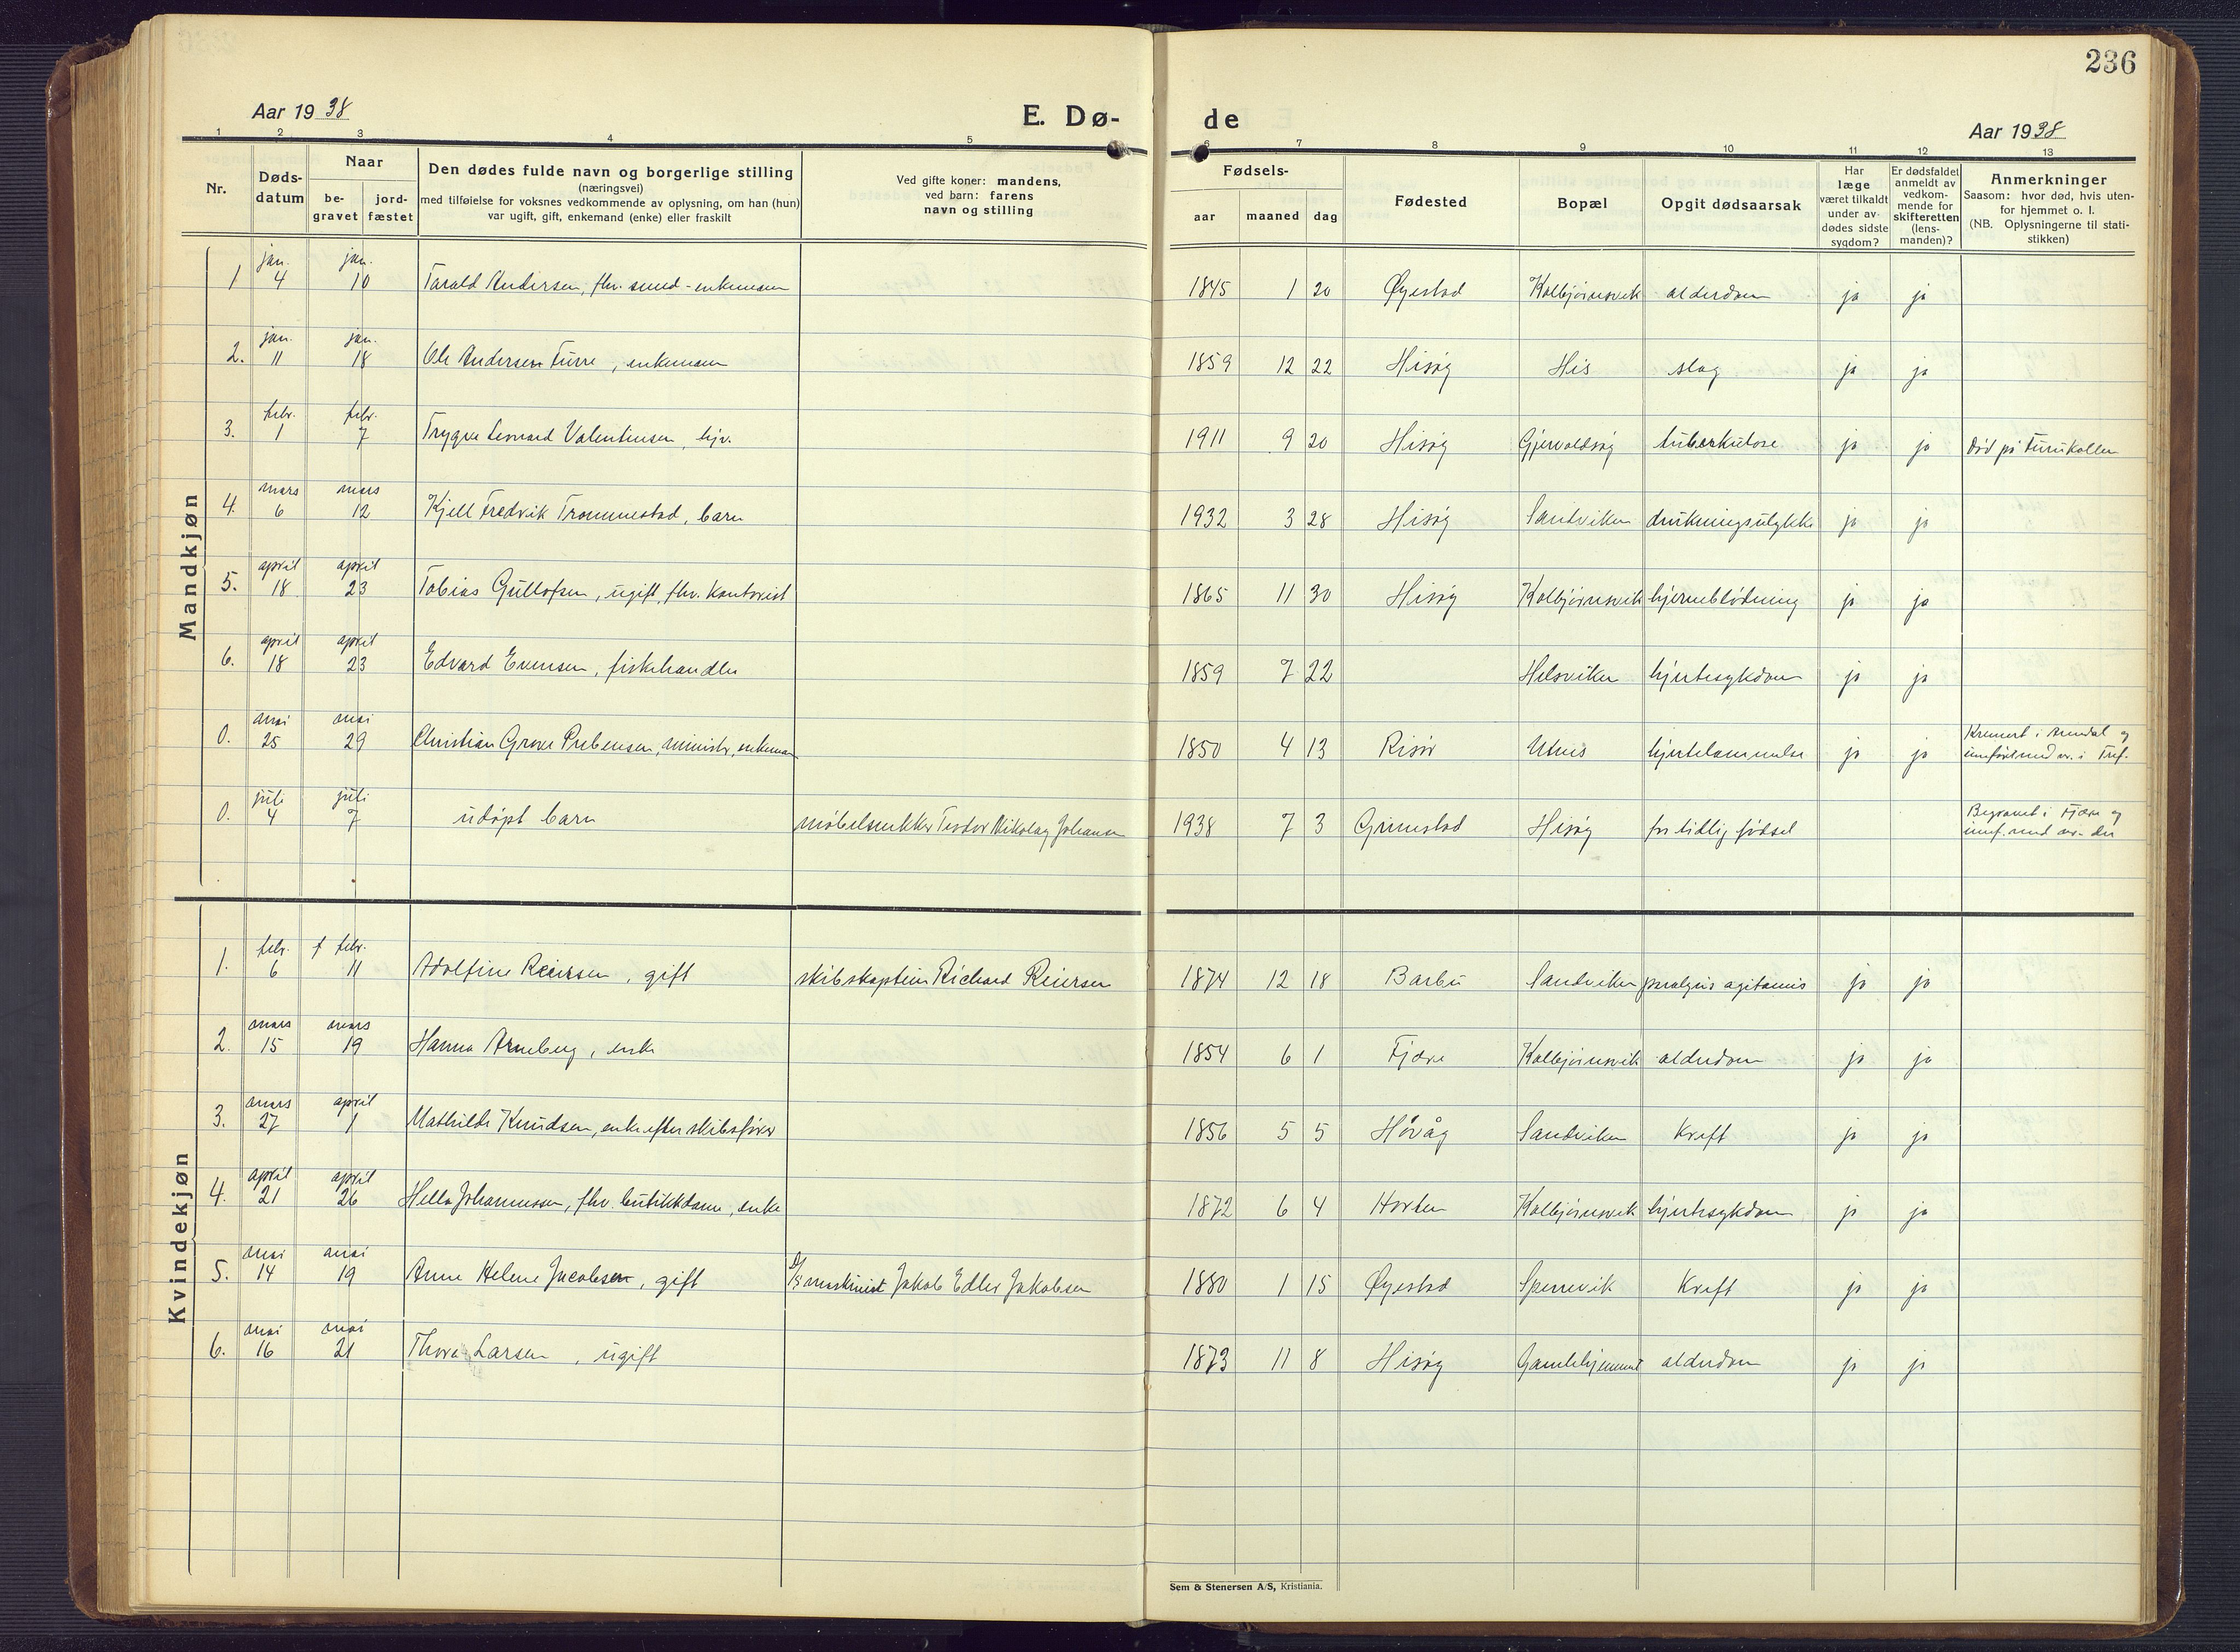 236
Aar 1938
E. Dø-
de
Aar 1938
1 2 3 4 5 6 7 8 9 10 11 12 13
Nr.
Døds-
datum
Naar
be-
gravet
jord-
fæstet
Den dødes fulde navn og borgerlige stilling
(næringsvei)
med tilføielse for voksnes vedkommende av oplysning, om han (hun)
var ugift, gift, enkemand (enke) eller fraskilt
Ved gifte koner: mandens,
ved barn: farens
navn og stilling
Fødsels-
aar maaned dag
Fødested
Bopæl
Opgit dødsaarsak
Har
læge
været tilkaldt
under av-
dødes sidste
sygdom?
Er dødsfaldet
anmeldt av
vedkom-
mende for
skifteretten
(lens-
manden)?
Anmerkninger
Saasom: hvor død, hvis uten-
for hjemmet o. l.
(NB. Oplysningerne til stati-
stikken)
Mandkjøn
jan. jan.
1 4 10 Tarald Andersen, fhv. smed - enkemann 1845 1 20 Øyestad Kolbjørnsvik alderdom ja ja
jan. jan.
2. 11 18 Ole Andersen Furre, enkemann 1859 12 22 Hisøy His slag ja ja
febr. febr.
3. 1 7 Trygve Leonard Valentinsen, 1911 9 20 Hisøy Gjervoldsøy tuberkulose ja ja Død på Furukollen
mars mars
4. 6 12 Kjell Fredrik Trommestad, barn 1932 3 28 Hisøy Sandviken drukningsulykke ja ja
april april
5. 18 23 Tobias Gullofsen, ugift, fhv. kontorist 1865 11 30 Hisøy Kolbjørnsvik hjerneblødning ja ja
april april
6. 18 23 Edvard Evensen, fiskehandler 1859 7 22 Helsviken hjertesykdom ja ja
mai mai
0. 25 29 Christian Grove Prebensen, ministr, enkeman 1850 4 13 Risør Utnes hjertelammelse ja ja Kremert i Arendal og
innført med nr. i Tref.
juli juli
0. 4 7 udøpt barn møbelsnekker Teodor Nikolay Johansen 1938 7 3 Grimstad Hisøy for tidlig fødsel Begravet i Fjære og
innf. med nr. der
Kvindekjøn
febr. f febr.
1. 6 11 Adolfine Reiersen, gift skibskaptein Richard Reiersen 1874 12 18 Barbu Sandviken paralysis agitannis ja ja
mars mars
2. 15 19 Hanna Arneberg, enke 1854 6 1 Fjære Kolbjørnsvik alderdom ja ja
mars april
3. 27 1 Mathilde Knudsen, enke efter skibsfører 1856 5 5 Høvåg Sandviken Kreft ja ja
april april
4. 21 26 Hella Johannessen, fhv. butikkdame, enke 1872 6 4 Horten Kolbjørnsvik hjertesykdom ja ja
mai mai
5. 14 19 Anne Helene Jacobsen, gift D/S maskinist Jakob Edler Jakobsen 1880 1 15 Øyestad Spervik Kreft ja ja
mai mai
6. 16 21 Thora Larsen, ugift 1873 11 8 Hisøy Gamlehjemmet alderdom ja ja
Sem & Stenersen A/S, Kristiania.